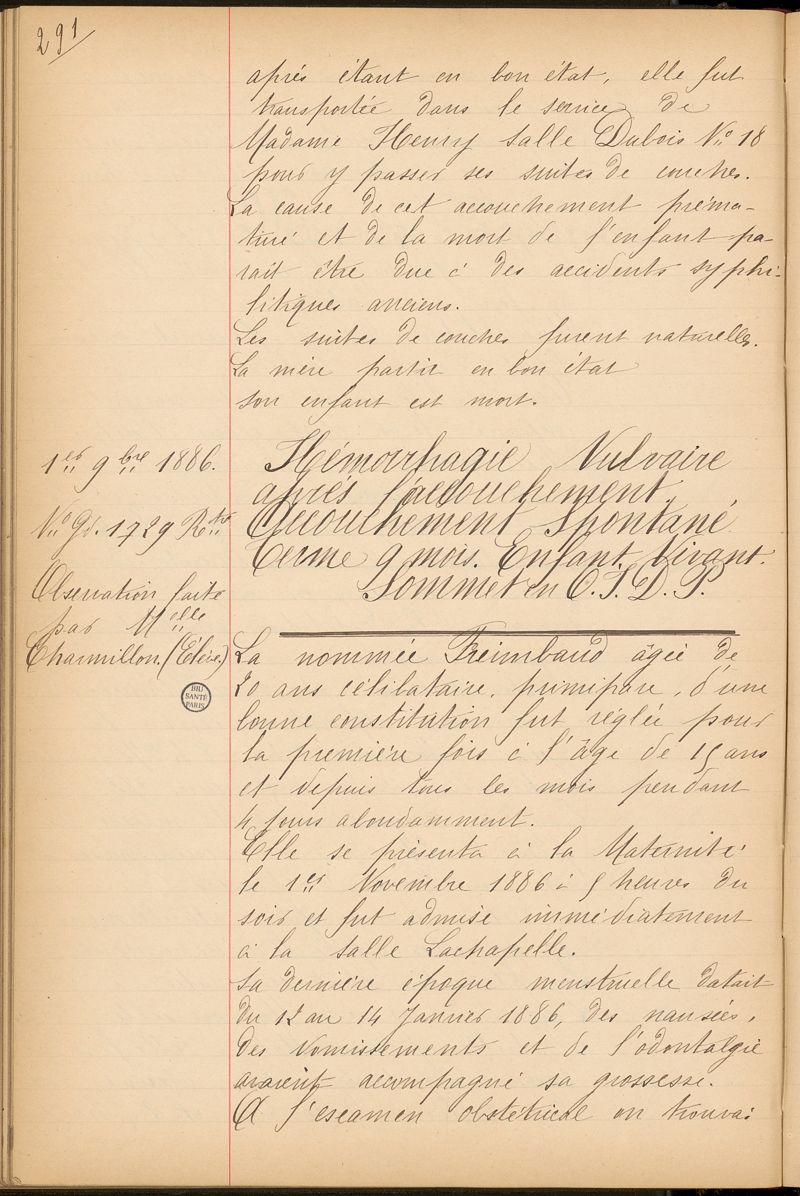 291
après étant en bon état, elle fut
transportée dans le service de
Madame Henry salle Dubois No 18
pour y passer ses suites de couches.
La cause de cet accouchement préma-
turé et de la mort de l'enfant pa-
rait être due à des accidents syphi-
litiques anciens.
Les suites de couches furent naturelles.
La mère partit en bon état
son enfant est mort.
1er 9bre 1886.
No Gd. 1729 Rtre
Observation faite
par Melle
Charmillon (Elève)
BIU
SANTÉ
PARIS
Hémorrhagie Vulvaire
après l'accouchement.
Accouchement Spontané.
Terme 9 mois. Enfant vivant.
Sommet en O.I.D.P.
La nommée Freimbaud âgée de
20 ans célibataire, primipare, d'une
bonne constitution fut réglée pour
la première fois à l'âge de 15 ans
et depuis tous les mois pendant
4 jours abondamment.
Elle se présenta à la Maternité
le 1er Novembre 1886 à 5 heures du
soir et fut admise immédiatement
à la salle Lachapelle.
Sa dernière époque menstruelle datait
du 12 au 14 Janvier 1886, des nausées,
des vomissements et de l'odontalgie
avaient accompagné sa grossesse.
A l'escamen obstétrical on trouva: